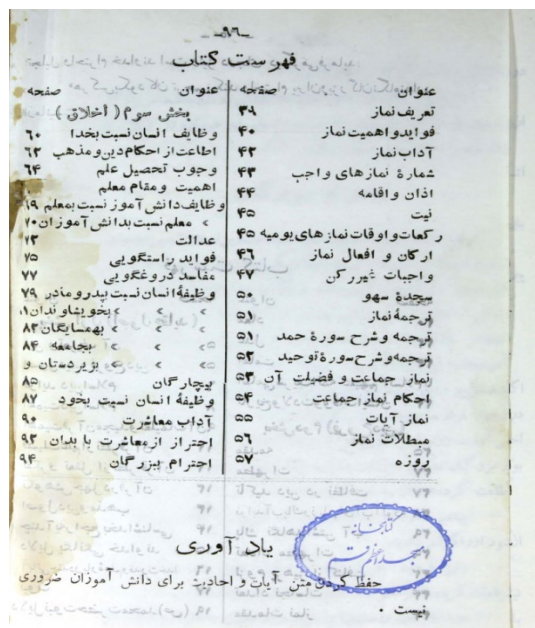 ـ۹۶ـ
فهرست کتاب
عنوان صفحه
تعریف نماز ۳۹
فوایدو اهمیت نماز ۴۰
آداب نماز ۴۲
شمارهٔ نمازهای واجب ۴۳
اذان و اقامه ۴۴
نیت ۴۵
رکعات و اوقات نمازهای یومیه ۴۵
ارکان و افعال نماز ۴۶
واجبات غیررکن ۴۷
سجدهٔ سهو ۵۰
ترجمهٔ نماز ۵۱
ترجمه وشرح سورهٔ حمد ۵۱
ترجمه وشرح سورهٔ توحید ۵۲
نماز جماعت و فضیلت آن ۵۳
احکام نماز جماعت ۵۴
نماز آیات ۵۵
مبطلات نماز ۵۶
روزه ۵۷
عنوان صفحه
بخش سوم ( اخلاق )
وظایف انسان نسبت بخدا ۶۰
اطاعت از احکام دین و مذهب ۶۲
وجوب تحصیل علم ۶۴
اهمیت ومقام معلم
وظایف دانش آموز نسبت بمعلم ۶۹
» معلم نسبت بدانش آموزان ۷۰
عدالت ۷۳
فواید راستگویی ۷۵
مفاسد دروغگویی ۷۷
وظیفهٔ انسان نسبت بپدر و مادر ۷۹
» » » بخویشاوندان
» » » بهمسایگان ۸۳
» » » بجامعه ۸۴
» » » بزیردستان و
بیچارگان ۸۵
وظیفهٔ انسان نسبت بخود ۸۷
آداب معاشرت ۹۰
احتراز از معاشرت با بدان ۹۲
احترام بزرگان ۹۴
یادآوری
حفظ کردن متن آیات و احادیث برای دانش آموزان ضروری
نیست .
کتابخانه
مسجد اعظم قم